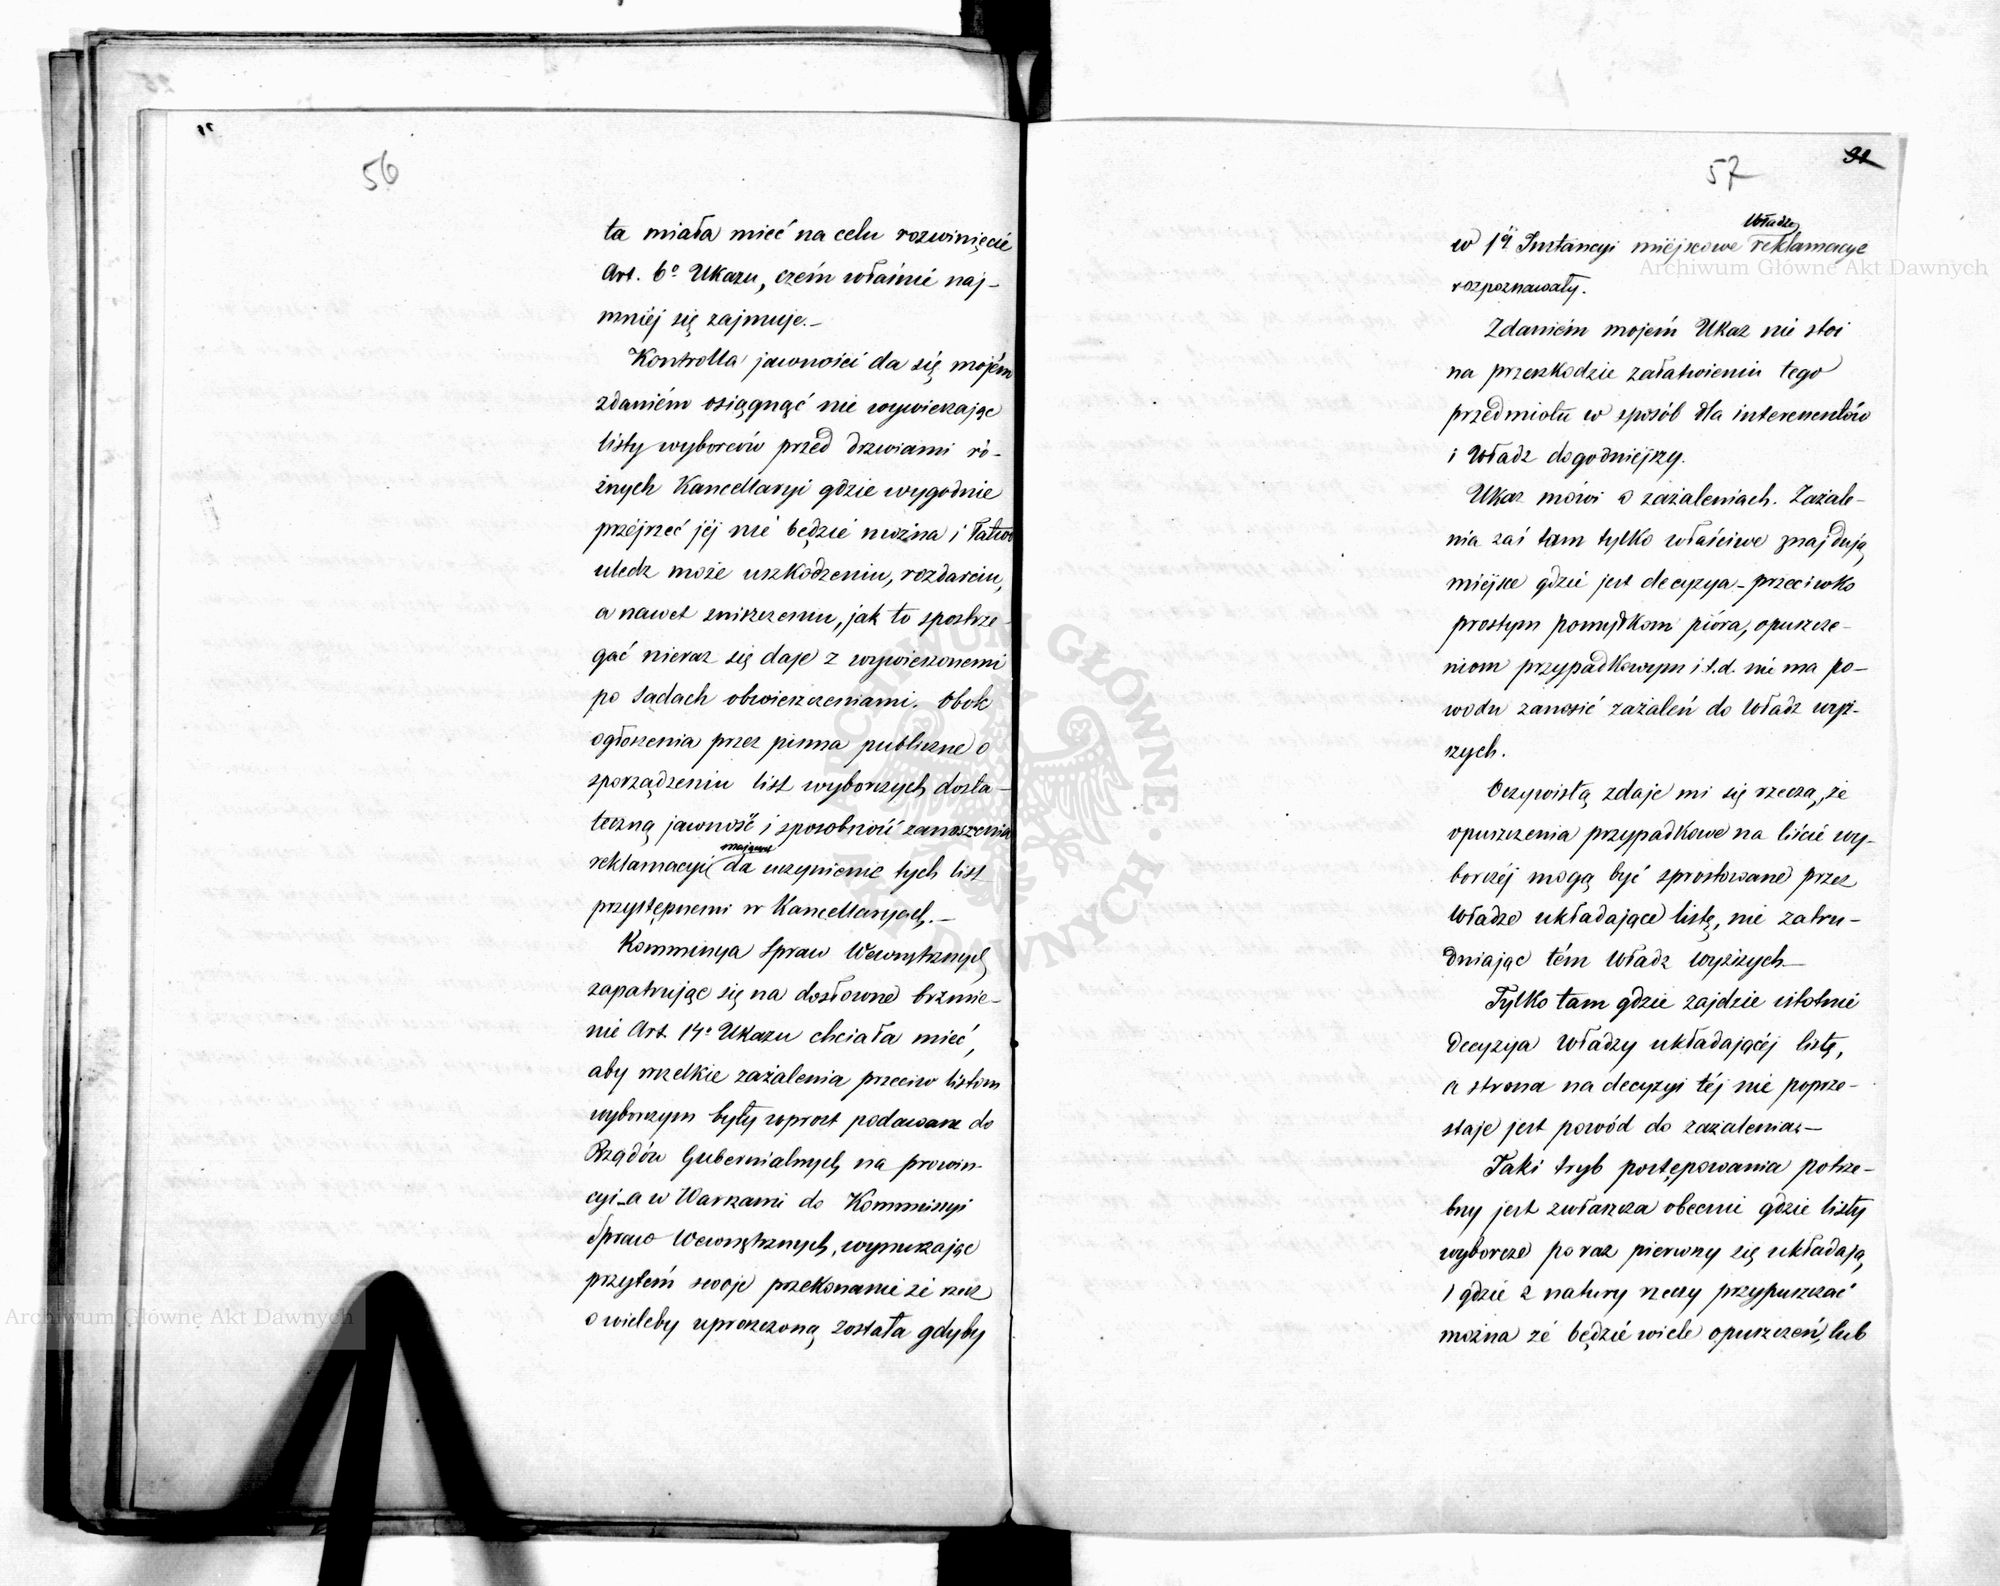 56
ta miała mieć na celu rozwinięcie
Art. 6º Ukazu, czém właśnie naj-
mniéj się zajmuje.—
Kontrolla jawności da się mojém
zdaniém osiągnąć nie wywieszając
listy wyborców przed drzwiami ró-
żnych Kancellaryi gdzie wygodnie
przéjrzeć jéj nie będzie można i łatwo
uledz może uszkodzeniu, rozdarciu,
a nawet zniszczeniu, jak to spostrze-
gać nieraz się daje z wywieszonemi
po sądach obwieszczeniami. Obok
ogłoszenia przez pisma publiczne o
sporządzeniu list wyborczych dosta-
teczną jawność i sposobność zanoszenia
reklamacyi da uczynienie tych list
przystępnemi w Kancellaryach.—
Kommissya Spraw Wewnętrznych
zapatrując się na dosłowne brzmie-
nie Art. 14º Ukazu chciała mieć,
aby wszelkie zażalenia przeciw listom
wyborczym były wprost podawane do
Rządów Gubernialnych na prowin-
cyi–a w Warszawie do Kommissyi
Spraw Wewnętrznych, wynurzając
przytém swoje przekonanie że rzecz
o wieleby uproszczoną została gdyby
57
Władze
w 1éj Instancyi miejscowe reklamacye
rozpoznawały.
Zdaniém mojém Ukaz nie stoi
na przeszkodzie załatwieniu tego
przedmiotu w sposób dla interesentów
i Władz dogodniejszy.
Ukaz mówi o zażaleniach. Zażale-
nia zaś tam tylko właściwe znajdują
miejsce gdzie jest decyzya–przeciwko
prostym pomyłkom pióra, opuszcze-
niom przypadkowym i t.d. nie ma po-
wodu zanosić zażaleń do Władz wyż-
szych.
Oczywistą zdaje mi się rzeczą, że
opuszczenia przypadkowe na liście wy-
borczéj mogą być sprostowane przez
Władze układające listę, nie zatru-
dniając tém Władz wyższych—
Tylko tam gdzie zajdzie istotnie
decyzya Władzy układającéj listę,
a strona na decyzyi téj nie poprze-
staje jest powód do zażalenia—
Taki tryb postępowania potrze-
bny jest zwłaszcza obecnie gdzie listy
wyborcze po raz pierwszy się układają,
i gdzie z natury rzeczy przypuszczać
można że będzie wiele opuszczeń, lub
Archiwum Główne Akt Dawnych
Archiwum Główne Akt Dawnych
ARCHIWUM GŁÓWNE AKT DAWNYCH